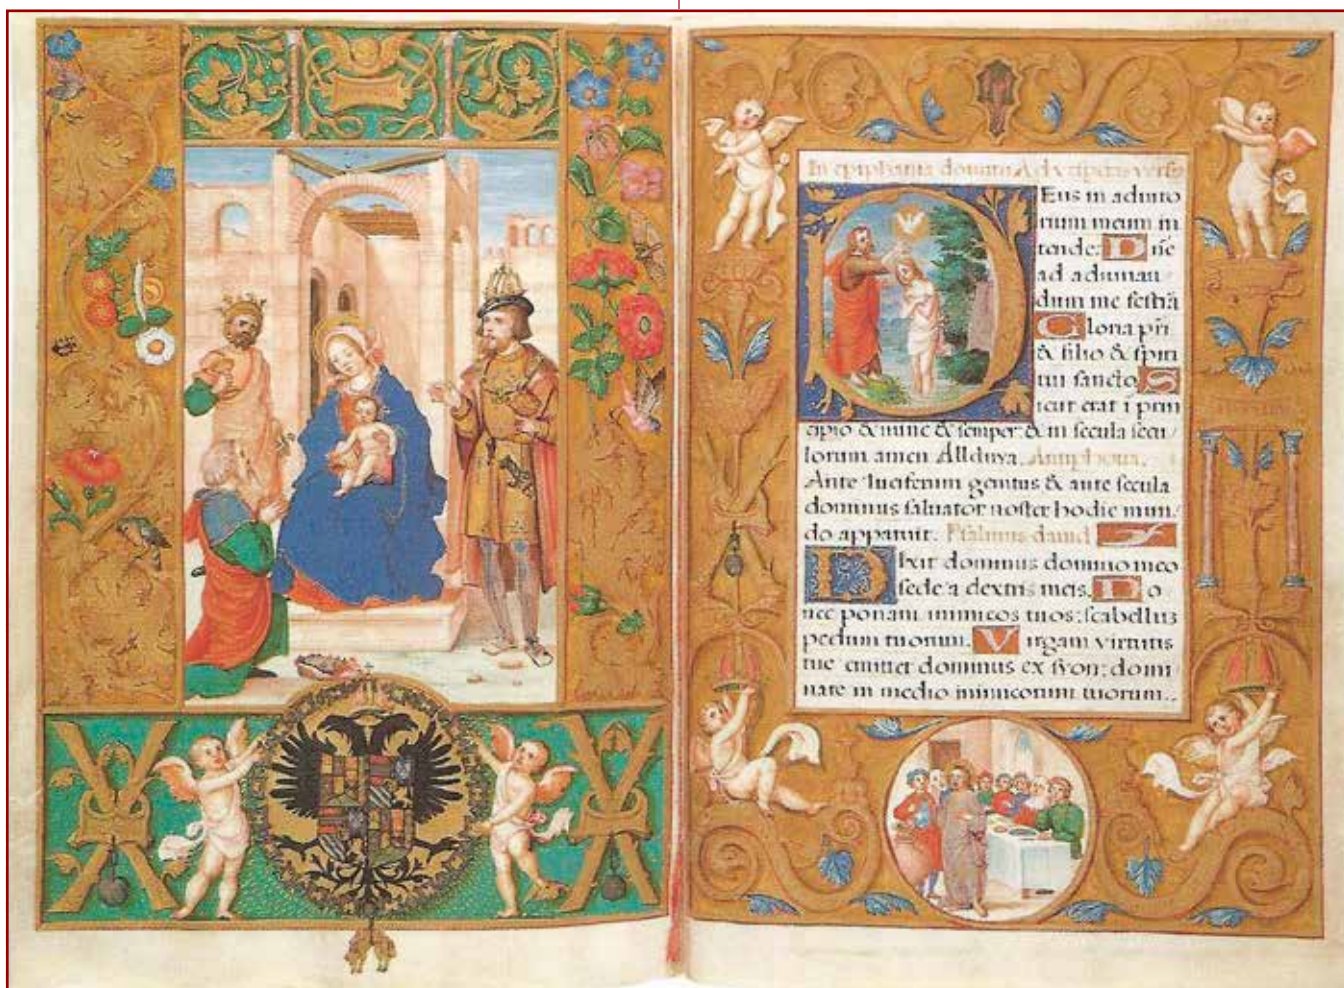 In epiphania domini Ad vesperas vers9
DEus in adiuto
rium meum in
tende. Dñe
ad adiuuan
dum me festiã
Gloria pri
& filio & spiri
tui sancto. S
icut erat i prin
cipio & nunc & semper & in secula secu
lorum amen Alleluya. Antiphona.
Ante luciferum genitus & ante secula
dominus saluator noster hodie mun
do apparuit. Psalmus dauid
DIxit dominus domino meo
sede a dextris meis. Do
nec ponam inimicos tuos: scabellũ
pedum tuorum. Virgam virtutis
tue emittet dominus ex syon: domi
nare in medio inimicorum tuorum.